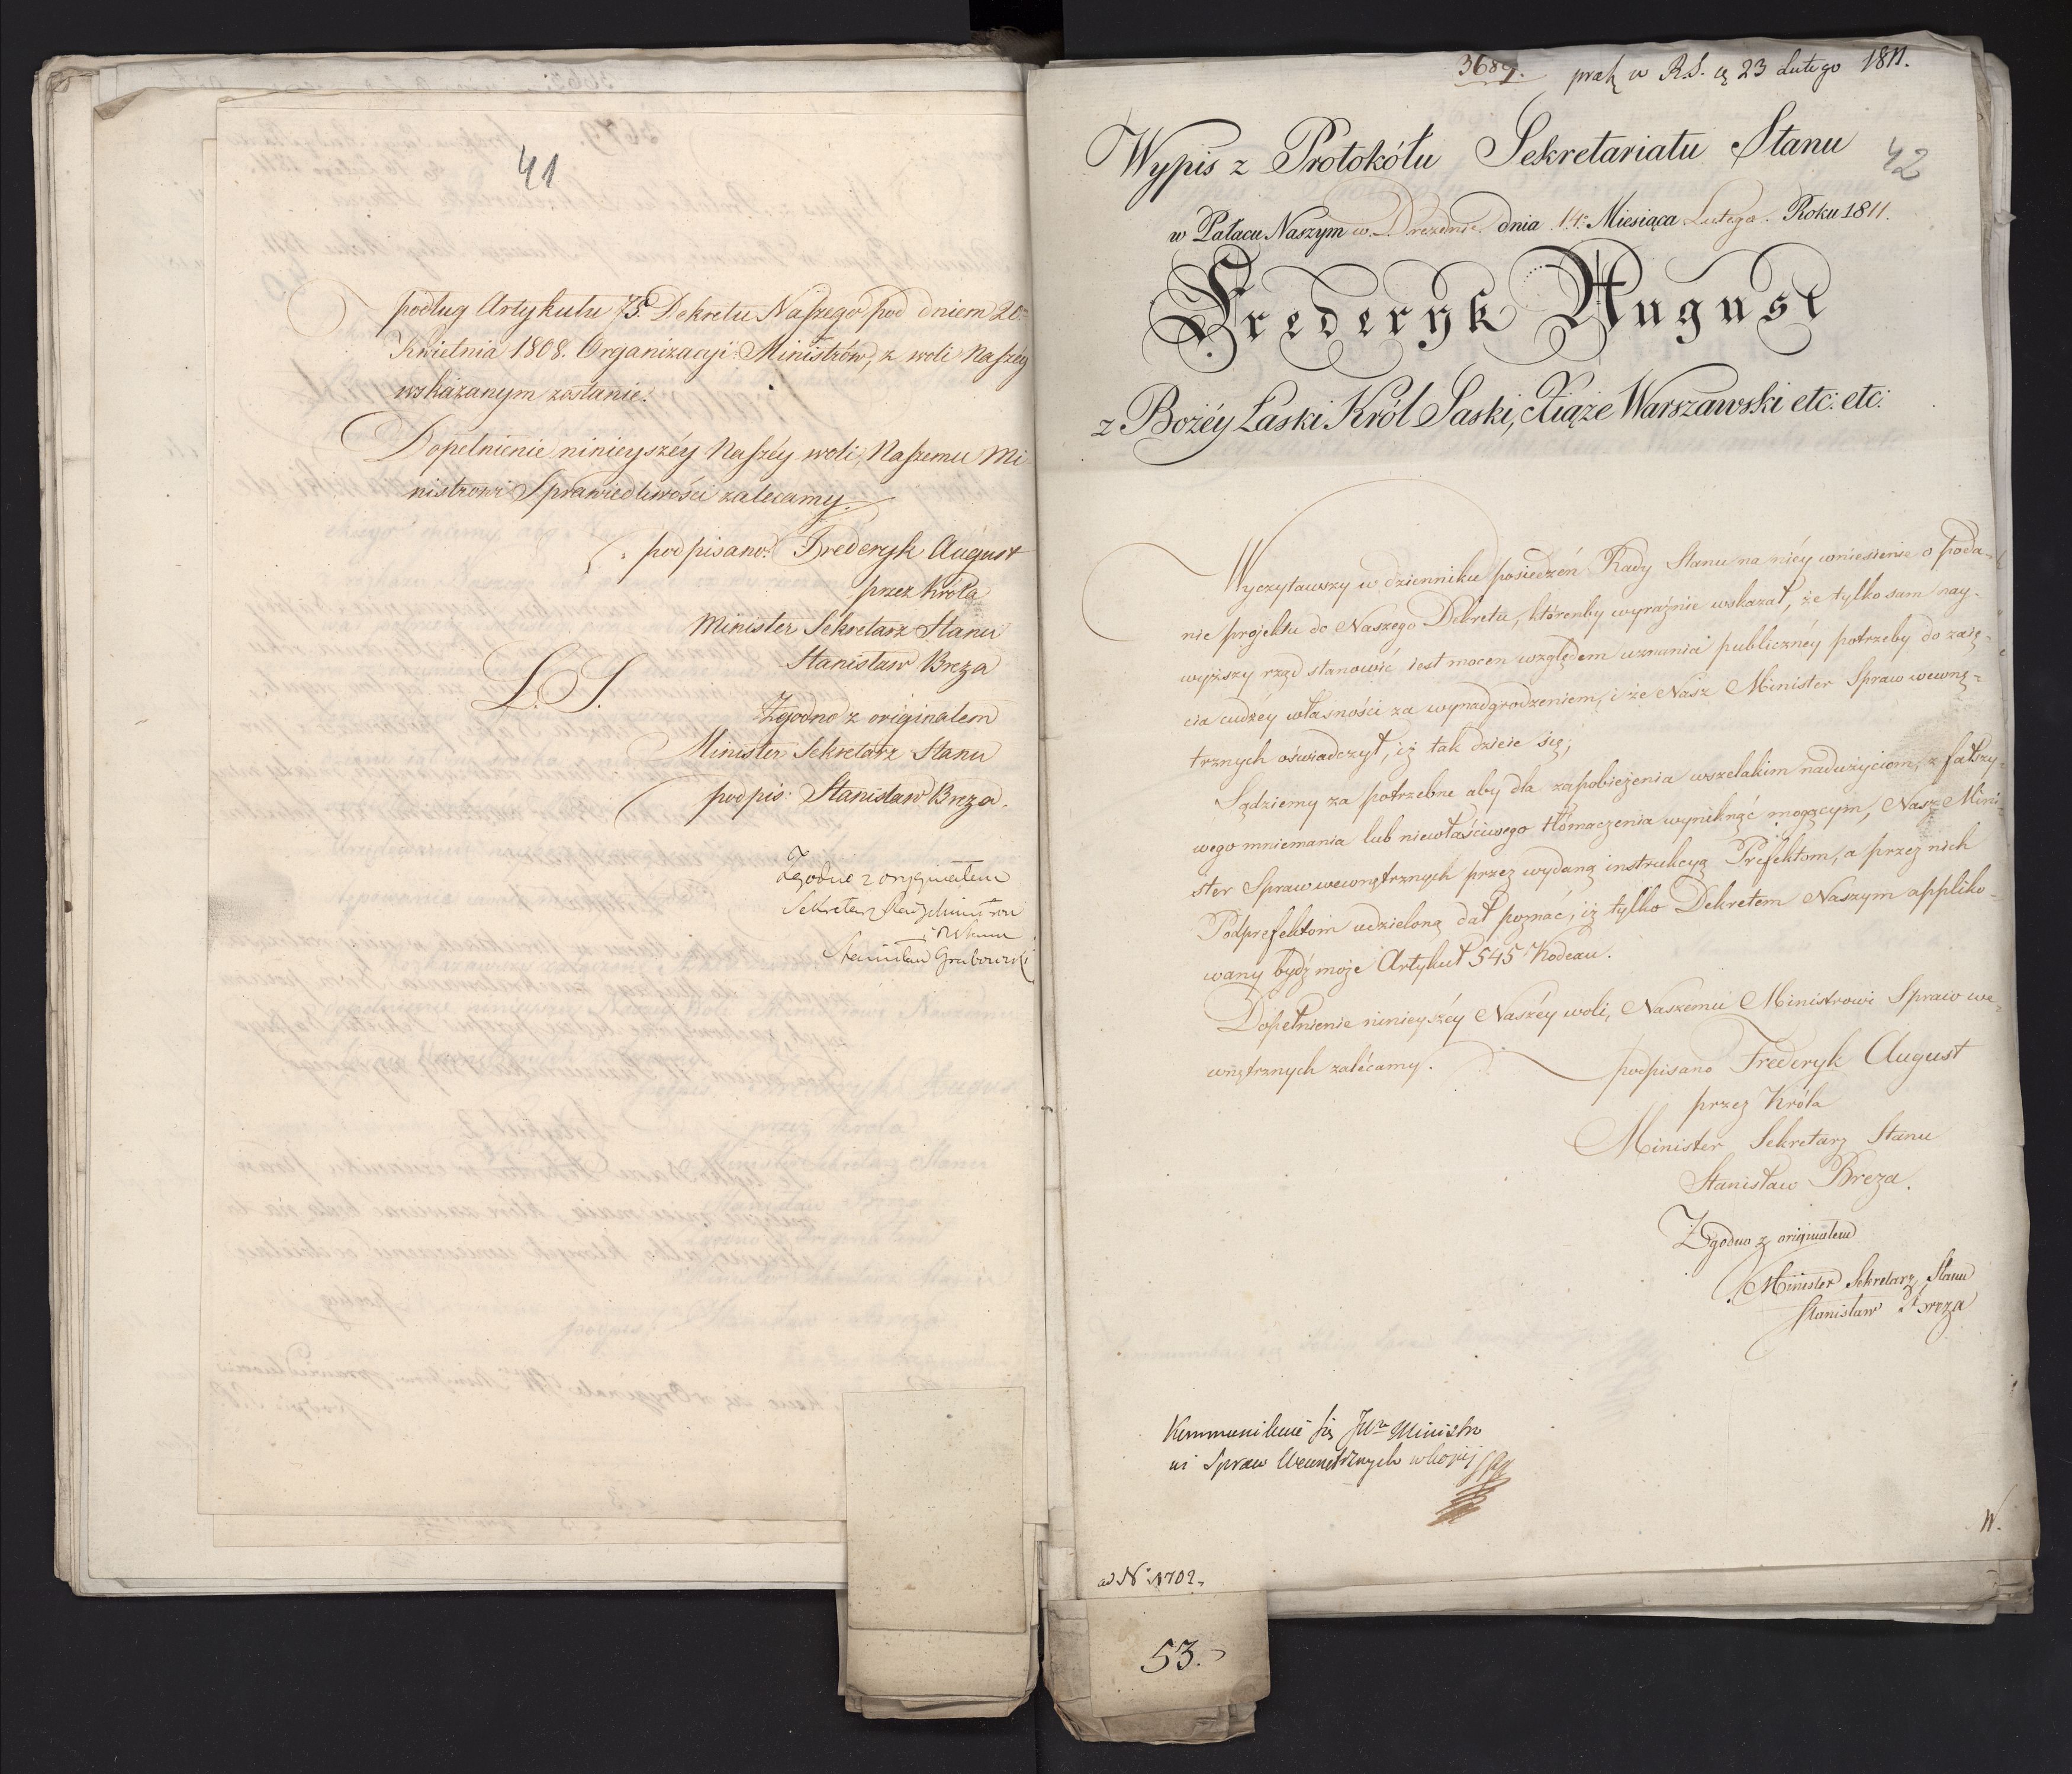 41
podług Artykułu 75. Dekretu Naszego pod dniem 20.
Kwietnia 1808. Organizacyi Ministrów, z woli Naszey
wskazanym zostanie.
Dopełnienie ninieyszéy Naszéy woli, Naszemu Mi
nistrowi Sprawiedliwości zalecamy.
podpisano: Frederyk August
przez Króla
Minister Sekretarz Stanu
Stanisław Breza
L. S.
Zgodno z originałem
Minister Sekretarz Stanu
podpis: Stanisław Breza.
Zgodne z oryginałem
Sekretarz Rady Ministrów
Stanisław Grabowski
3689. w R.S. 23 Lutego 1811.
Wypis z Protokółu Sekretariatu Stanu
42
w Pałacu Naszym w Dreznie dnia 14. Miesiąca Lutego Roku 1811.
Frederyk August
z Bożéy Łaski Król Saski, Xiąże Warszawski etc: etc:
Wyczytawszy w dzienniku posiedzéń Rady Stanu na niéy wniesienie o poda-
nie projektu do Naszego Dekretu, którenby wyraźnie wskazał, że tylko sam nay-
wyższy rząd stanowić iest mocen względem uznania publicznéy potrzeby do zaię-
cia cudzéy własności za wynadgrodzeniem, i że Nasz Minister Spraw wewnę-
trznych oświadczył, iż tak dzieie się;
Sądziemy za potrzebne aby dla zapobieżenia wszelakim nadużyciom, z fałszy-
wego mniemania lub niewłaściwego tłómaczenia wyniknąć mogącym, Nasz Mini-
ster Spraw wewnętrznych przez wydaną instrukcyą Prefektom, a przez nich
Podprefektom udzieloną dał poznać, iż tylko Dekretem Naszym appliko-
wany bydź może Artykuł 545 Kodexu.
Dopełnienie ninieyszéy Naszéy woli, Naszemu Ministrowi Spraw we-
wnętrznych zalécamy.
podpisano Frederyk August
przez Króla
Minister Sekretarz Stanu
Stanisław Breza.
Zgodno z originałem
Minister Sekretarz Stanu
Stanisław Breza
Kommunikuie się JWu Ministro
wi Spraw Wewnętrznych w kopij
W.
ad N. 1702.
53.